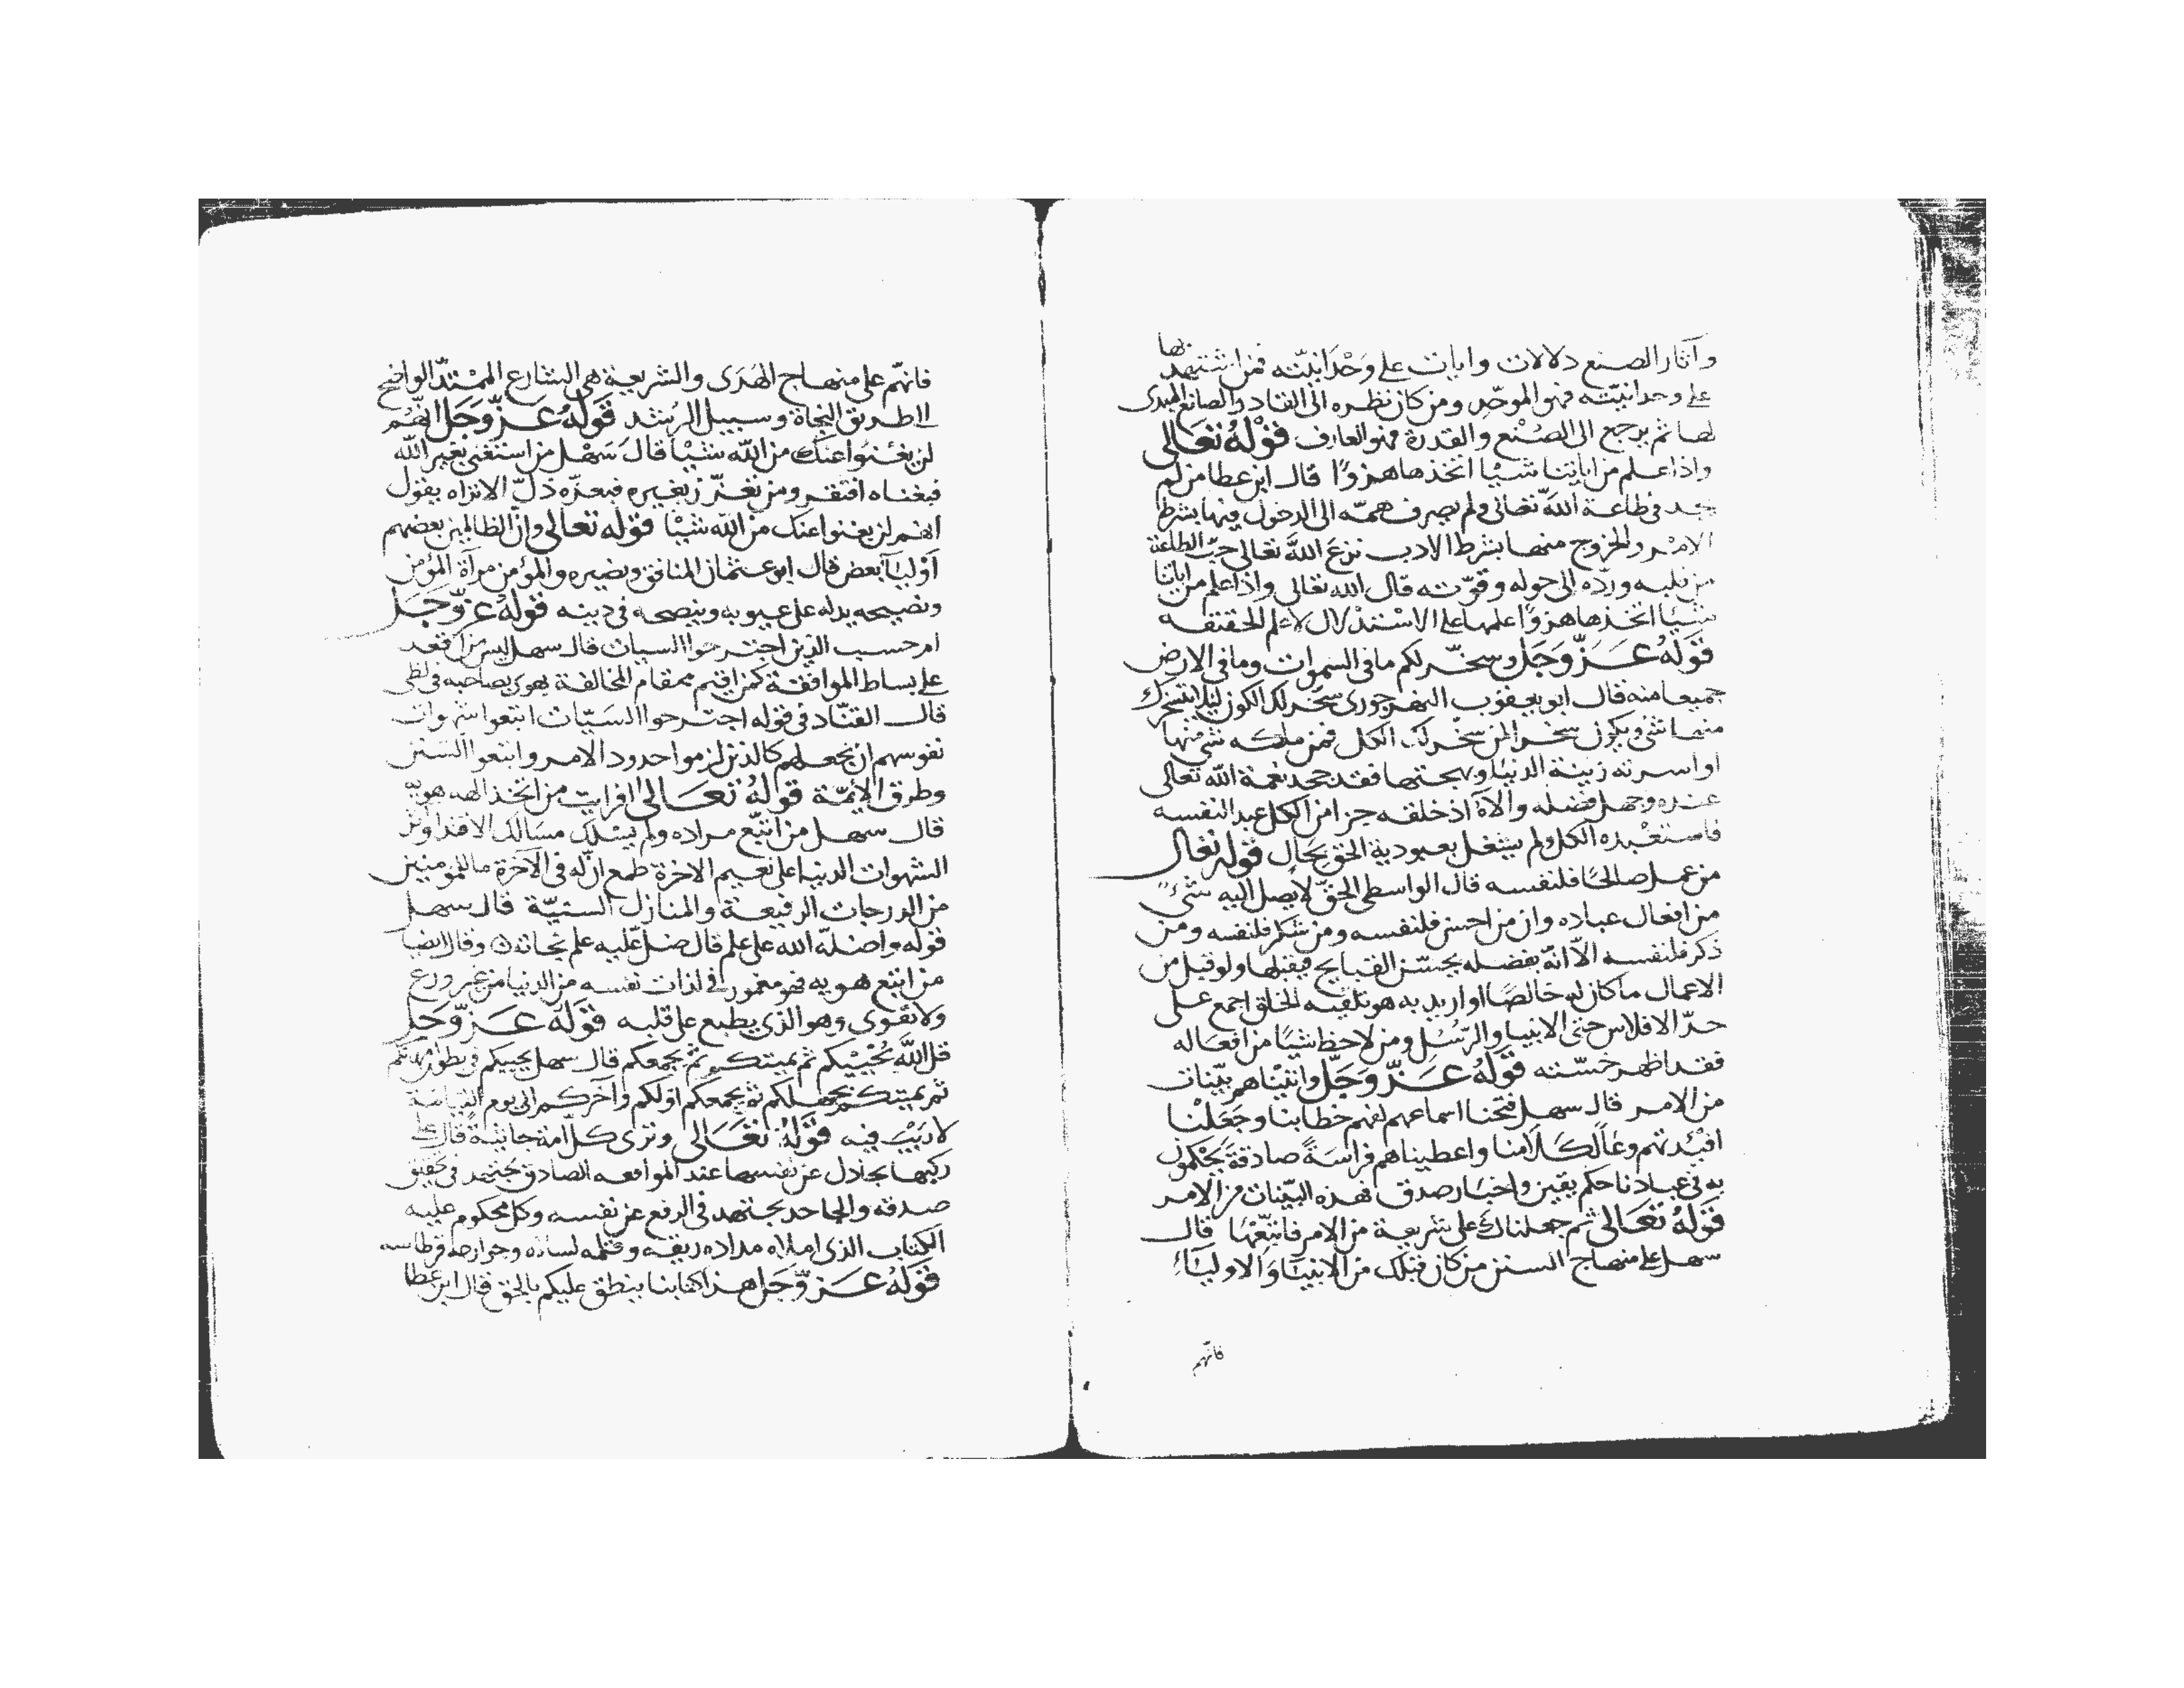 وآثار الصنع دلالات وايات على وَحْدَانيّته فمن استشهد بها
على وحدانيّته فهو الموحّد ومن كان نظره الى القادر والصانع المبدى
لصا ثم يرجع الى الصُنْع والقدرة فهو العارف قوْلهُ تعَالى
واذا علم من اياتنا شيْيا اتخذها هزوًا قال ابن عطا من لم
يجد فى طاعة اللهَ تعالى ولم يصرف همّه الى الدخول فيها بشرط
الامْر والخروج منها بشرط الادب نزعَ اللهَ تعالى حبّ الطاعة
من قلبه وردّه الى حوله وقوّته قال الله تعالى واذا علم من اياتنا
شيْيًا اتخذها هزوًا علمها على الاسْتدْلال لا علم الحقيقه
قوَلهُ عَزّوَجَل وسخّر لكم ما فى السموات وما فى الارض
جميعا منه قال ابو يعقوب النهرجورى سخر لك الكون ليلا يسخرك
منها شئ ويكون سخرا لمن سخّر لك الكل فمن ملكه شئ منها
او اسرته زينة الدنيا وبهجتها فقد جحد نعمة الله تعالى
عنده وجهل فضله والآة اذ خلقه حرا من الكل عبد النفسه
فاستعْبده الكل ولم يشغل بعبودية الحق بحال قوله تعالى
من عمل صالحًا فلنفسه قال الواسطى الحقّ لا يصل اليه شئ
من افعال عباده وان من احسن فلنفسه ومن شكر فلنفسه ومن
ذكر فلنفسه الاّ انّه بفضله يحسّن القبايح فيقبلها ولو قبل من
الاعمال ما كان له خالصًا او اريد به هو تلقيه الخلق اجمع على
حدّ الافلاس حتى الانبيا والرّسُل ومن لاحظ شيًا من افعاله
فقد اظهر خسّته قوَلهُ عَزّوَجَلّ واتيْناهم بيّنات
من الامر قال سهل فتحنا اسماعهم لفهم خطابنا وجَعَلْنا
افئدتهم وعاً لكلامنا واعطيناهم فراسَةً صادقة يحْكمون
به فى عبادنا حكم يقين واخبار صدق فهذه البيّنات من الامر
قوَلهُ تعَالى ثم جعلناك على شريعة من الامر فاتبّعْهَا قال
سهل على منهاج السنن من كان قبلك من الانبيَا وَالاوليَاء
فانّهم
فانهّم على منهاج الهُدَى والشريعة هى الشارع الممْتدّ الواضح
الا طريق النجاة وسبيل الرشد قوَلهُ عَزّوَجَل انهُم
لن يغنُوا عنك من الله شيْيا قالَ سَهْل من استغنى بغير الله
فبغناه افتقر ومن تعزّز بغيره فبعزّه ذلّ الا تراه يقول
انهم لن يغنوا عنك من الله شيْا قوله تعالى وانّ الظالمين بعضهم
أوْليآ بعض قال ابو عثمان المنافق ونصيره والمؤمن مرآة المؤمن
ونصيحه يدله على عيوبه وينصحه فى دينه قوَلهُ عزّوَجَل
ام حسب الذين اجترحوا السيات قال سهل ليس من اقعد
على بساط الموافقة كمن اقيم بمقام المخالفة يهوى بصاحبه فى لظى
قال القنّاد فى قوله اجترحوا السَيّات ابتعوا شهوات
نفوسهم ان نجعلهم كالذين لزموا حدود الامر واتبعوا السَنن
وطرق الايمّة قوَلهُ تعَالى افرايت من اتخذ الهه هويه
قال سهل من اتبّع مراده ولم يسْلك مسَالك الاقتدا وآثر
الشهوات الدنيا على نعيم الاخرة طمع ان له فى الآخرة ما للمومنين
من الدرجات الرفيعة والمنازل السنيّة قال سهل
قوله واضلّه الله على علم قال ضل عليه علم نجاته ۞ وقال ايضا
من اتبع هويه فهو مغمور فى لذات نفسه من الدنيا من غير ورع
ولا تقوى وهو الذى يطبع على قلبه قوَلهُ عَزّوَجَل
قل اللهَ يُحْييْكم ثم يميتكم ثم يجمعكم قال سهل يحييكم فى بطون امهاتكم
ثم يميتكم بجهلكم ثم يجمعكم اولكم وآخركم الى يوم القيامة
لا ريْبَ فيه قوَلهُ تعَالى وترى كلّ امّة جاثيةً قال على
ركبها تجادل عن نفسها عند الموافعه الصادق يجتهد فى تحقيق
صدقه والجاحد يجتهد فى الرفع عن نفسه وكل محكوم عليه
الكتاب الذى املاه مداده ريقه وقلمه لسانه وجوارحه قرطاسه
قوَلهُ عَزّوَجَل هذا كتابنا ينطق عليكم بالحق قال ابن عطا